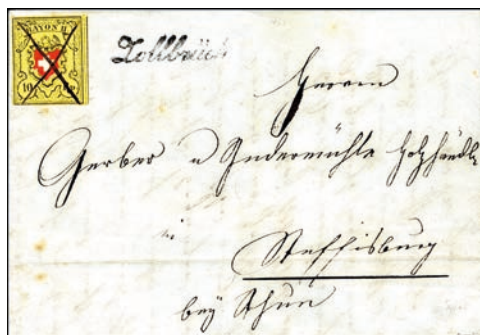 RAYON II
Zollbrück
10 Rp.
Herrn
Gerber u Indermühle Holzhändler
in
Steffisburg
bey Thun